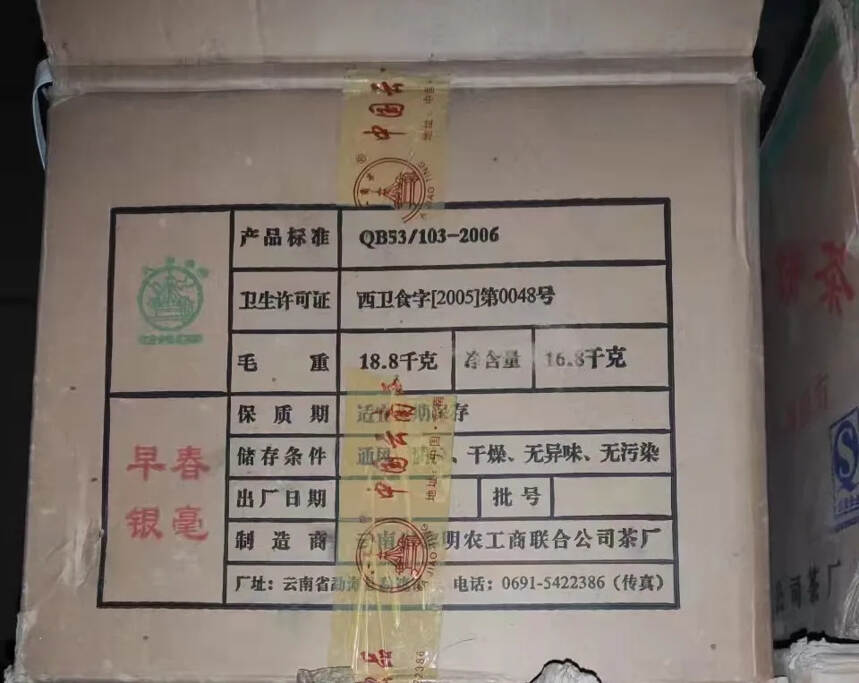 中国云
产品标准 QB53/103-2006
卫生许可证 西卫食字[2005]第0048号
毛 重 18.8千克 净含量 16.8千克
保质期 适 期保存
储存条件 通风、 、干燥、无异味、无污染
出厂日期 批号
制造商 云南 明农工商联合公司茶厂
厂址：云南省勐海 电话：0691-5422386（传真）
早春
银毫
中国云南
地址：中国·
茶
司茶厂